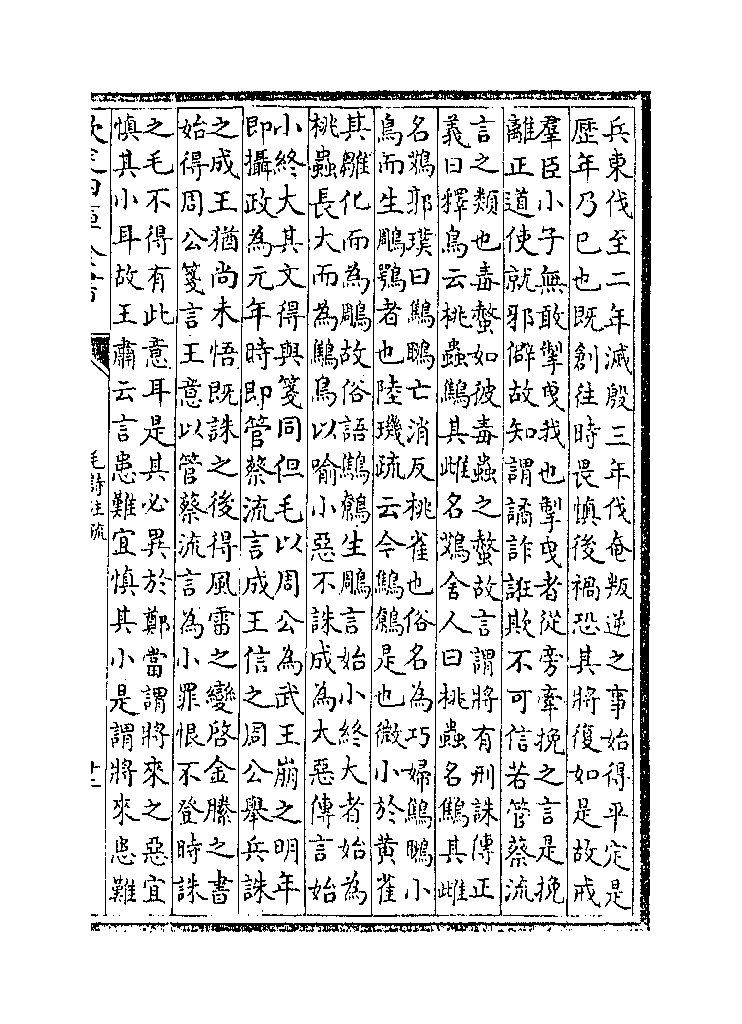 兵東伐至二年滅殷三年伐奄叛逆之事始得平定是
歴年乃已也既創往時畏慎後禍恐其將復如是故戒
羣臣小子無敢掣曳我也掣曳者從旁牽挽之言是挽
離正道使就邪僻故知謂譎詐誑欺不可信若管蔡流
言之類也毒螫如彼毒蟲之螫故言謂將有刑誅傳正
義曰釋鳥云桃蟲鷦其雌名鴱舍人曰桃蟲名鷦其雌
名鴱郭璞曰鷦鵬亡消反桃雀也俗名為巧婦鷦鵬小
鳥而生鵰鶚者也陸璣疏云今鷦鷯是也微小於黄雀
其雛化而為鵰故俗語鷦鷯生鵰言始小終大者始為
桃蟲長大而為鷦鳥以喻小惡不誅成為大惡傳言始
小終大其文得與箋同但毛以周公為武王崩之明年
即攝政為元年時即管蔡流言成王信之周公舉兵誅
之成王猶尚未悟既誅之後得風雷之變啓金縢之書
始得周公箋言王意以管蔡流言為小罪恨不登時誅
之毛不得有此意耳是其必異於鄭當謂將來之惡宜
慎其小耳故王肅云言患難宜慎其小是謂將來患難
毛詩注疏